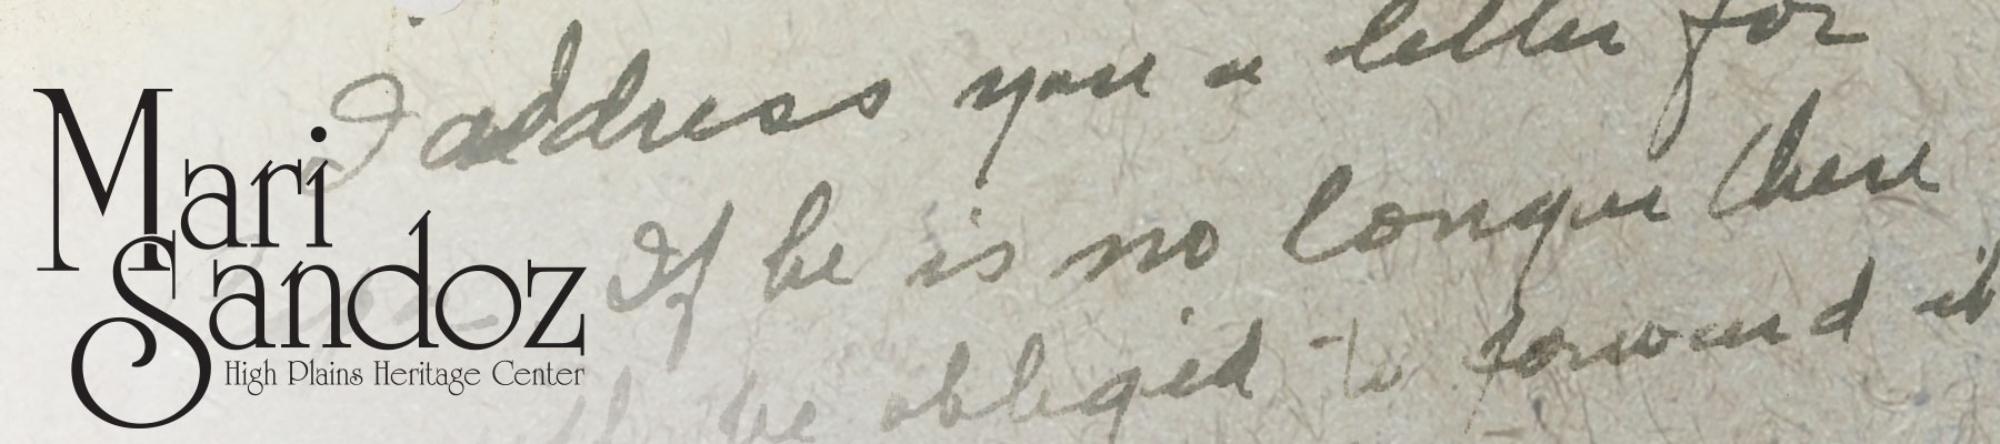 Mari
Sandoz
High Plains Heritage Center
I address you a letter for
If he is no longer there
be obliged to forward it